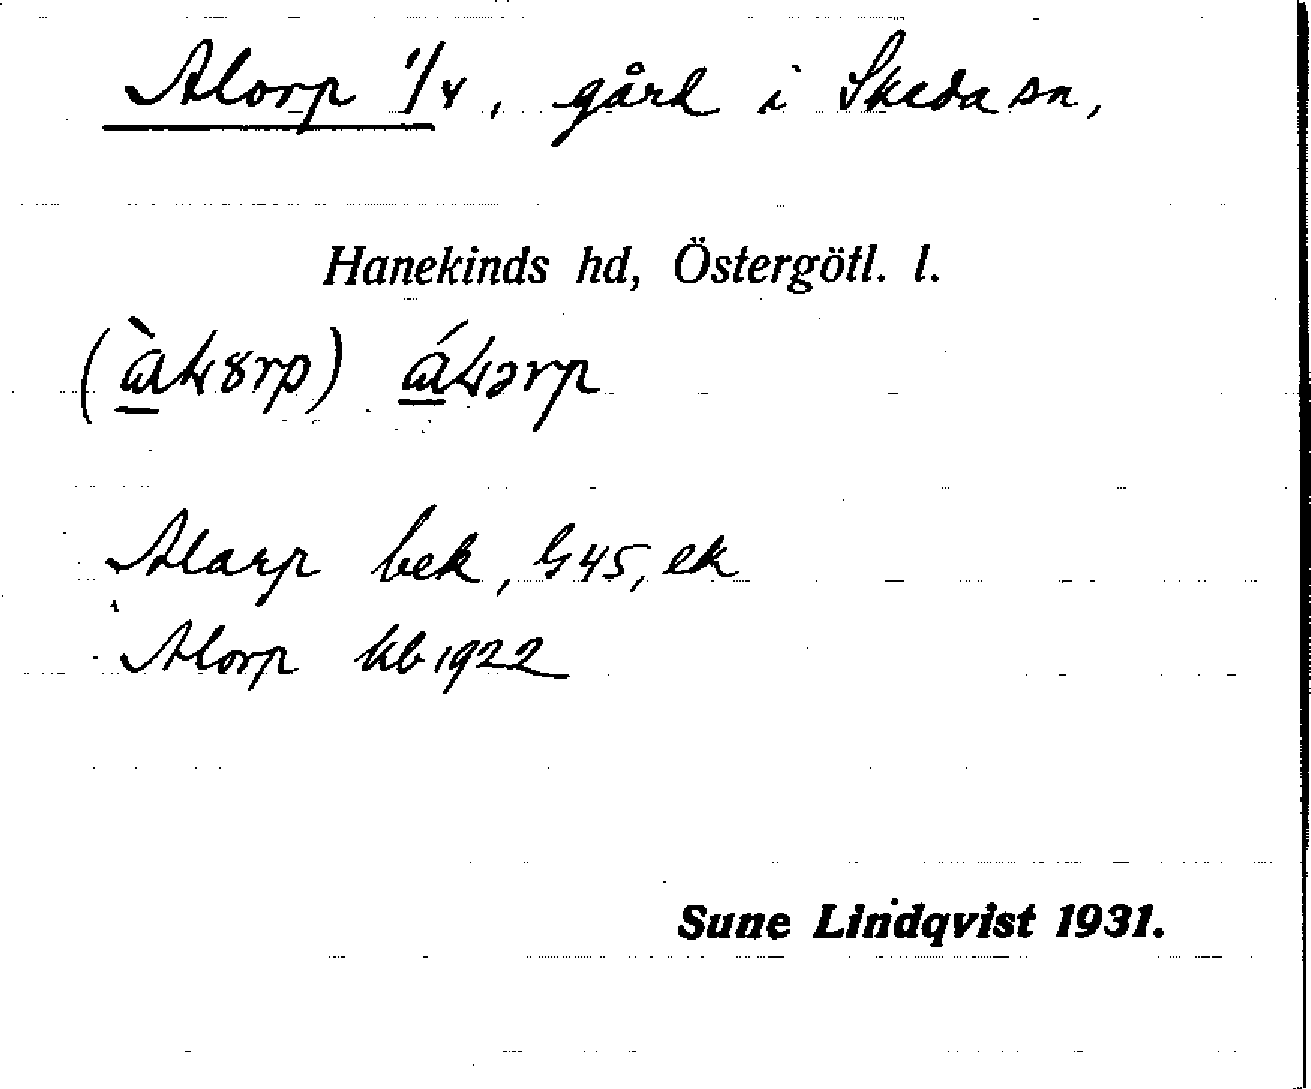 Alorp 1/4, gård i Skeda sn,
Hanekinds hd, Östergötl. l.
Alarp bek, G45, ek
Alorp kb 1922
Sune Lindqvist 1931.